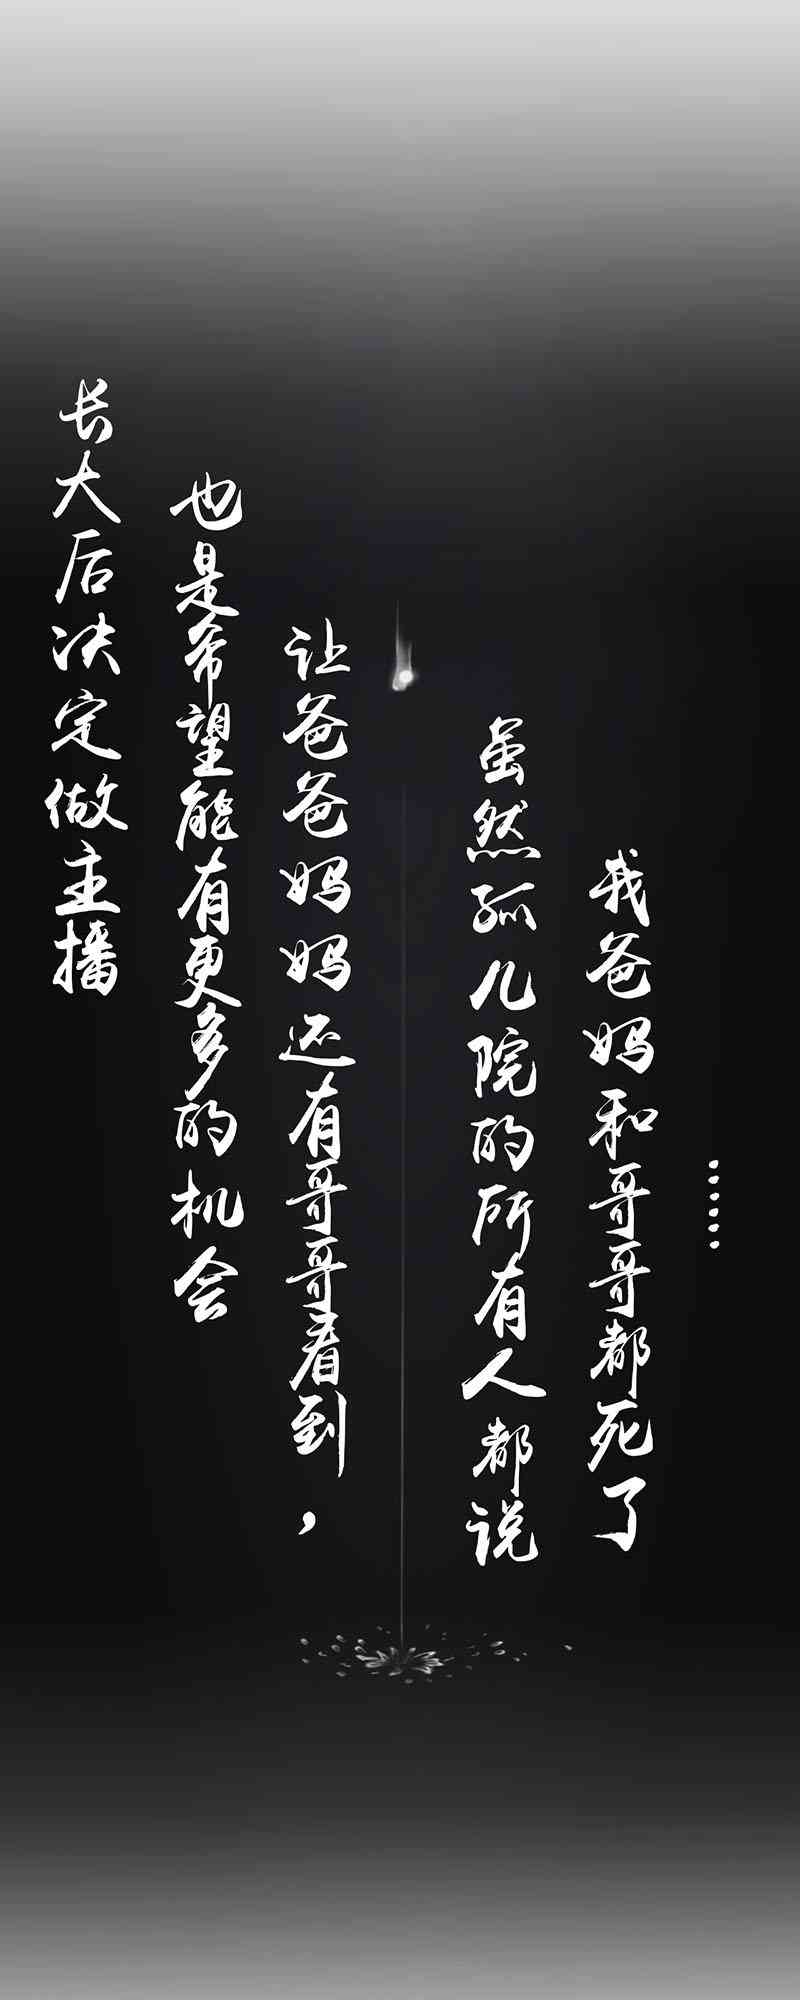 长大后决定做主播
也是希望能有更多的机会
让爸爸妈妈还有哥哥看到，
虽然孤儿院的所有人都说
我爸妈和哥哥都死了
……